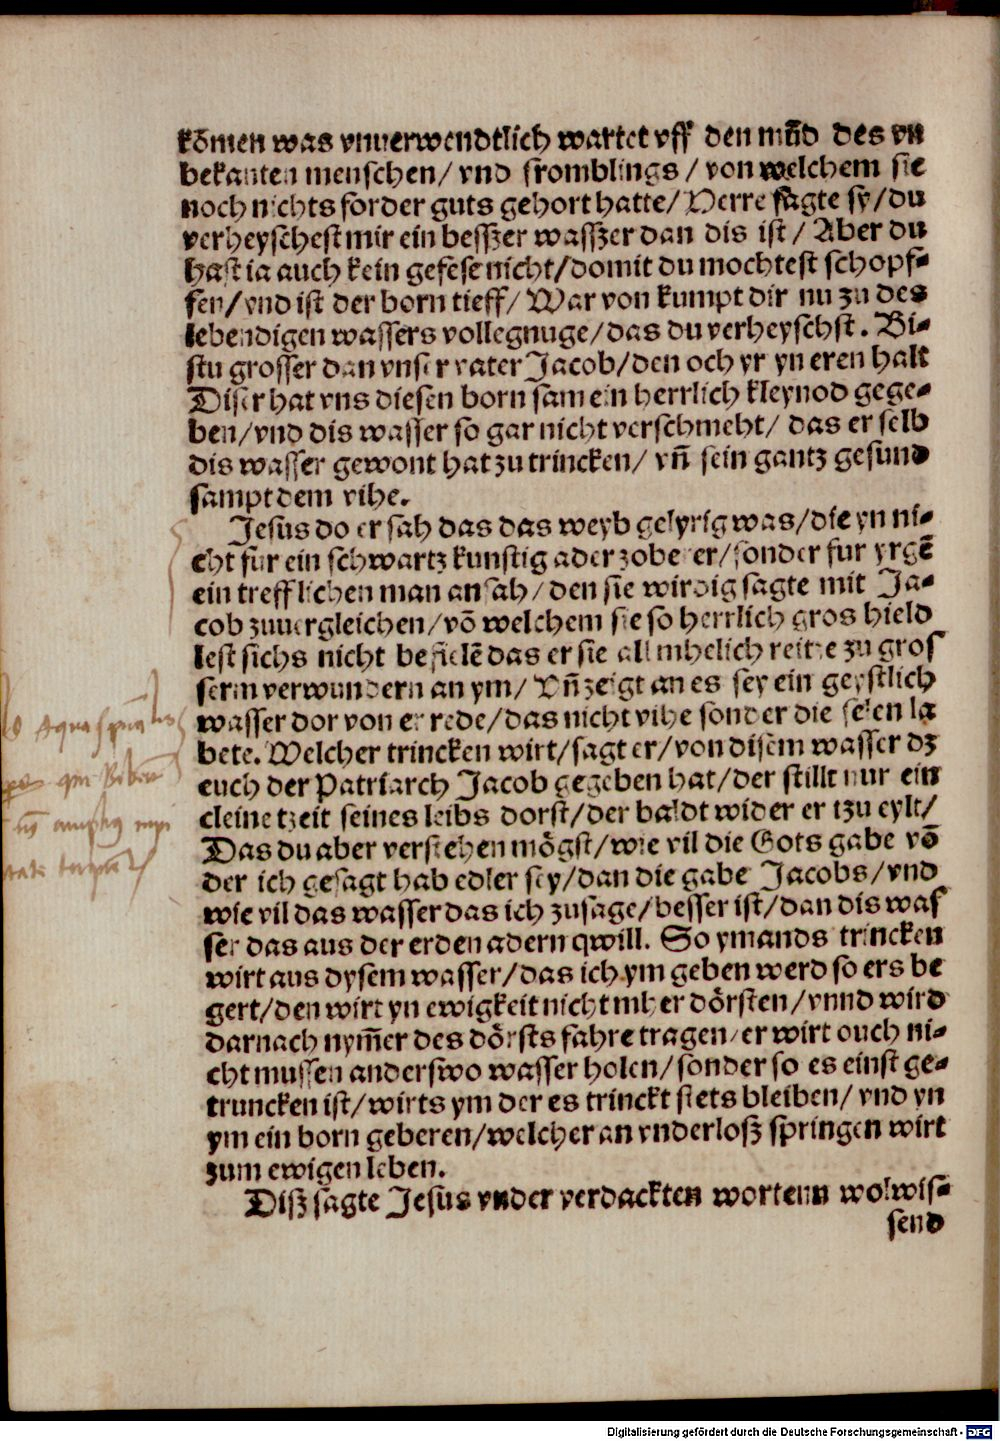 kōmen was vnuerwendtlich wartet vff den mūd des vn
bekanten menschen/ vnd fromblings/ von welchem sie
noch nichts forder guts gehort hatte/ Herre sagte sy/ du
verheyschest mir ein besszer wasszer dan dis ist/ Aber du
hast ia auch kein gefese nicht/ domit du mochtest schopf-
fen/ vnd ist der born tieff/ War von kumpt dir nu zu des
lebendigen wassers vollegnuge/ das du verheyschst. Bi-
stu grosser dan vnser vater Jacob/ den och yr yn eren halt
Diser hat vns diesen born sam ein herrlich kleynod gege-
ben/ vnd dis wasser so gar nicht verschmeht/ das er selb
dis wasser gewont hat zu trincken/ vn̄ sein gantz gesund
sampt dem vihe.
Jesus do er sah das das weyb gelyrig was/ die yn ni-
cht fur ein schwartz kunstig ader zoberer/ sonder fur yrgē
ein trefflichen man ansah/ den sie wirdig sagte mit Ja-
cob zuuergleichen/ vō welchem sie so herrlich gros hield
lest sichs nicht befielē das er sie allmhelich reitze zu gros
serm verwundern an ym/ Vn̄ zeigt an es sey ein geystlich
wasser dor von er rede/ das nicht vihe sonder die selen la
bete. Welcher trincken wirt/ sagt er/ von disem wasser dz
euch der Patriarch Jacob gegeben hat/ der stillt nur ein
cleine tzeit seines leibs dorst/ der baldt wider er tzu eylt/
Das du aber verstehen mögst/ wie vil die Gots gabe vō
der ich gesagt hab edler sey/ dan die gabe Jacobs/ vnd
wie vil das wasser das ich zusage/ besser ist/ dan dis was
ser das aus der erden adern qwill. So ymands trincken
wirt aus dysem wasser/ das ich ym geben werd so ers be
gert/ den wirt yn ewigkeit nicht mher dörsten/ vnnd wird
darnach nym̄er des dörsts fahre tragen/ er wirt ouch ni-
cht mussen anderswo wasser holen/ sonder so es einst ge-
truncken ist/ wirts ym der es trinckt stets bleiben/ vnd yn
ym ein born geberen/ welcher an vnderlosz springen wirt
zum ewigen leben.
Disz sagte Jesus vnder verdackten wortenn wolwis-
send
Digitalisierung gefördert durch die Deutsche Forschungsgemeinschaft - DFG